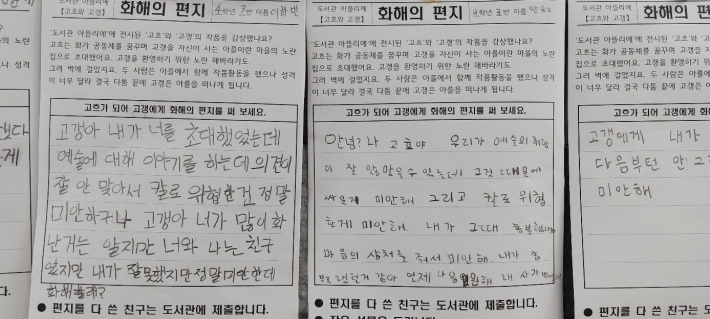 도서관 아뜰리에
【고흐와 고갱】
화해의 편지
학년 3반 이름
'도서관 아뜰리에'에 전시된 '고흐'와 '고갱'의 작품을 감상했나요?
고흐는 화가 공동체를 꿈꾸며 고갱을 자신이 사는 아를이란 마을의 노란
집으로 초대했어요. 고갱을 환영하기 위한 노란 해바라기도
그려 벽에 걸었지요. 두 사람은 아를에서 함께 작품활동을 했으나 성격
이 너무 달라 결국 다툼 끝에 고갱은 아를을 떠나게 됩니다.
고흐가 되어 고갱에게 화해의 편지를 써 보세요.
고갱아 내가 너를 초대했었는데
예술에 대해 이야기를 하는데 의견이
잘 안 맞아서 칼로 위협한건 정말
미안하구나 고갱아 너가 많이 화
난거는 알지만 너와 나는 친구
였지만 내가 잘못했지만 정말 미안한데
화해할래?
● 편지를 다 쓴 친구는 도서관에 제출합니다.
도서관 아뜰리에
【고흐와 고갱】
화해의 편지
학년 3반 이름
'도서관 아뜰리에'에 전시된 '고흐'와 '고갱'의 작품을 감상했나요?
고흐는 화가 공동체를 꿈꾸며 고갱을 자신이 사는 아를이란 마을의 노란
집으로 초대했어요. 고갱을 환영하기 위한 노란 해바라기도
그려 벽에 걸었지요. 두 사람은 아를에서 함께 작품활동을 했으나 성격
이 너무 달라 결국 다툼 끝에 고갱은 아를을 떠나게 됩니다.
고흐가 되어 고갱에게 화해의 편지를 써 보세요.
안녕? 나 고흐야 우리가 예술의 취향
이 잘 안 맞을 수 있는데 그것 때문에
싸운게 미안해. 그리고 칼로 위협
한게 미안해. 내가 그때
마음의 상처를 줘서 미안해 내가
같아 언제나 응원해 내
● 편지를 다 쓴 친구는 도서관에 제출합니다.
도서관 아뜰리에
【고흐와 고갱】
화해의 편
'도서관 아뜰리에'에 전시된 '고흐'와 '고갱'의
고흐는 화가 공동체를 꿈꾸며 고갱을 자신이
집으로 초대했어요. 고갱을 환영하기 위한
그려 벽에 걸었지요. 두 사람은 아를에서
이 너무 달라 결국 다툼 끝에 고갱은
고흐가 되어 고갱에게
고갱에게 내가
다음부턴 안 그
미안해
● 편지를 다 쓴 친구는